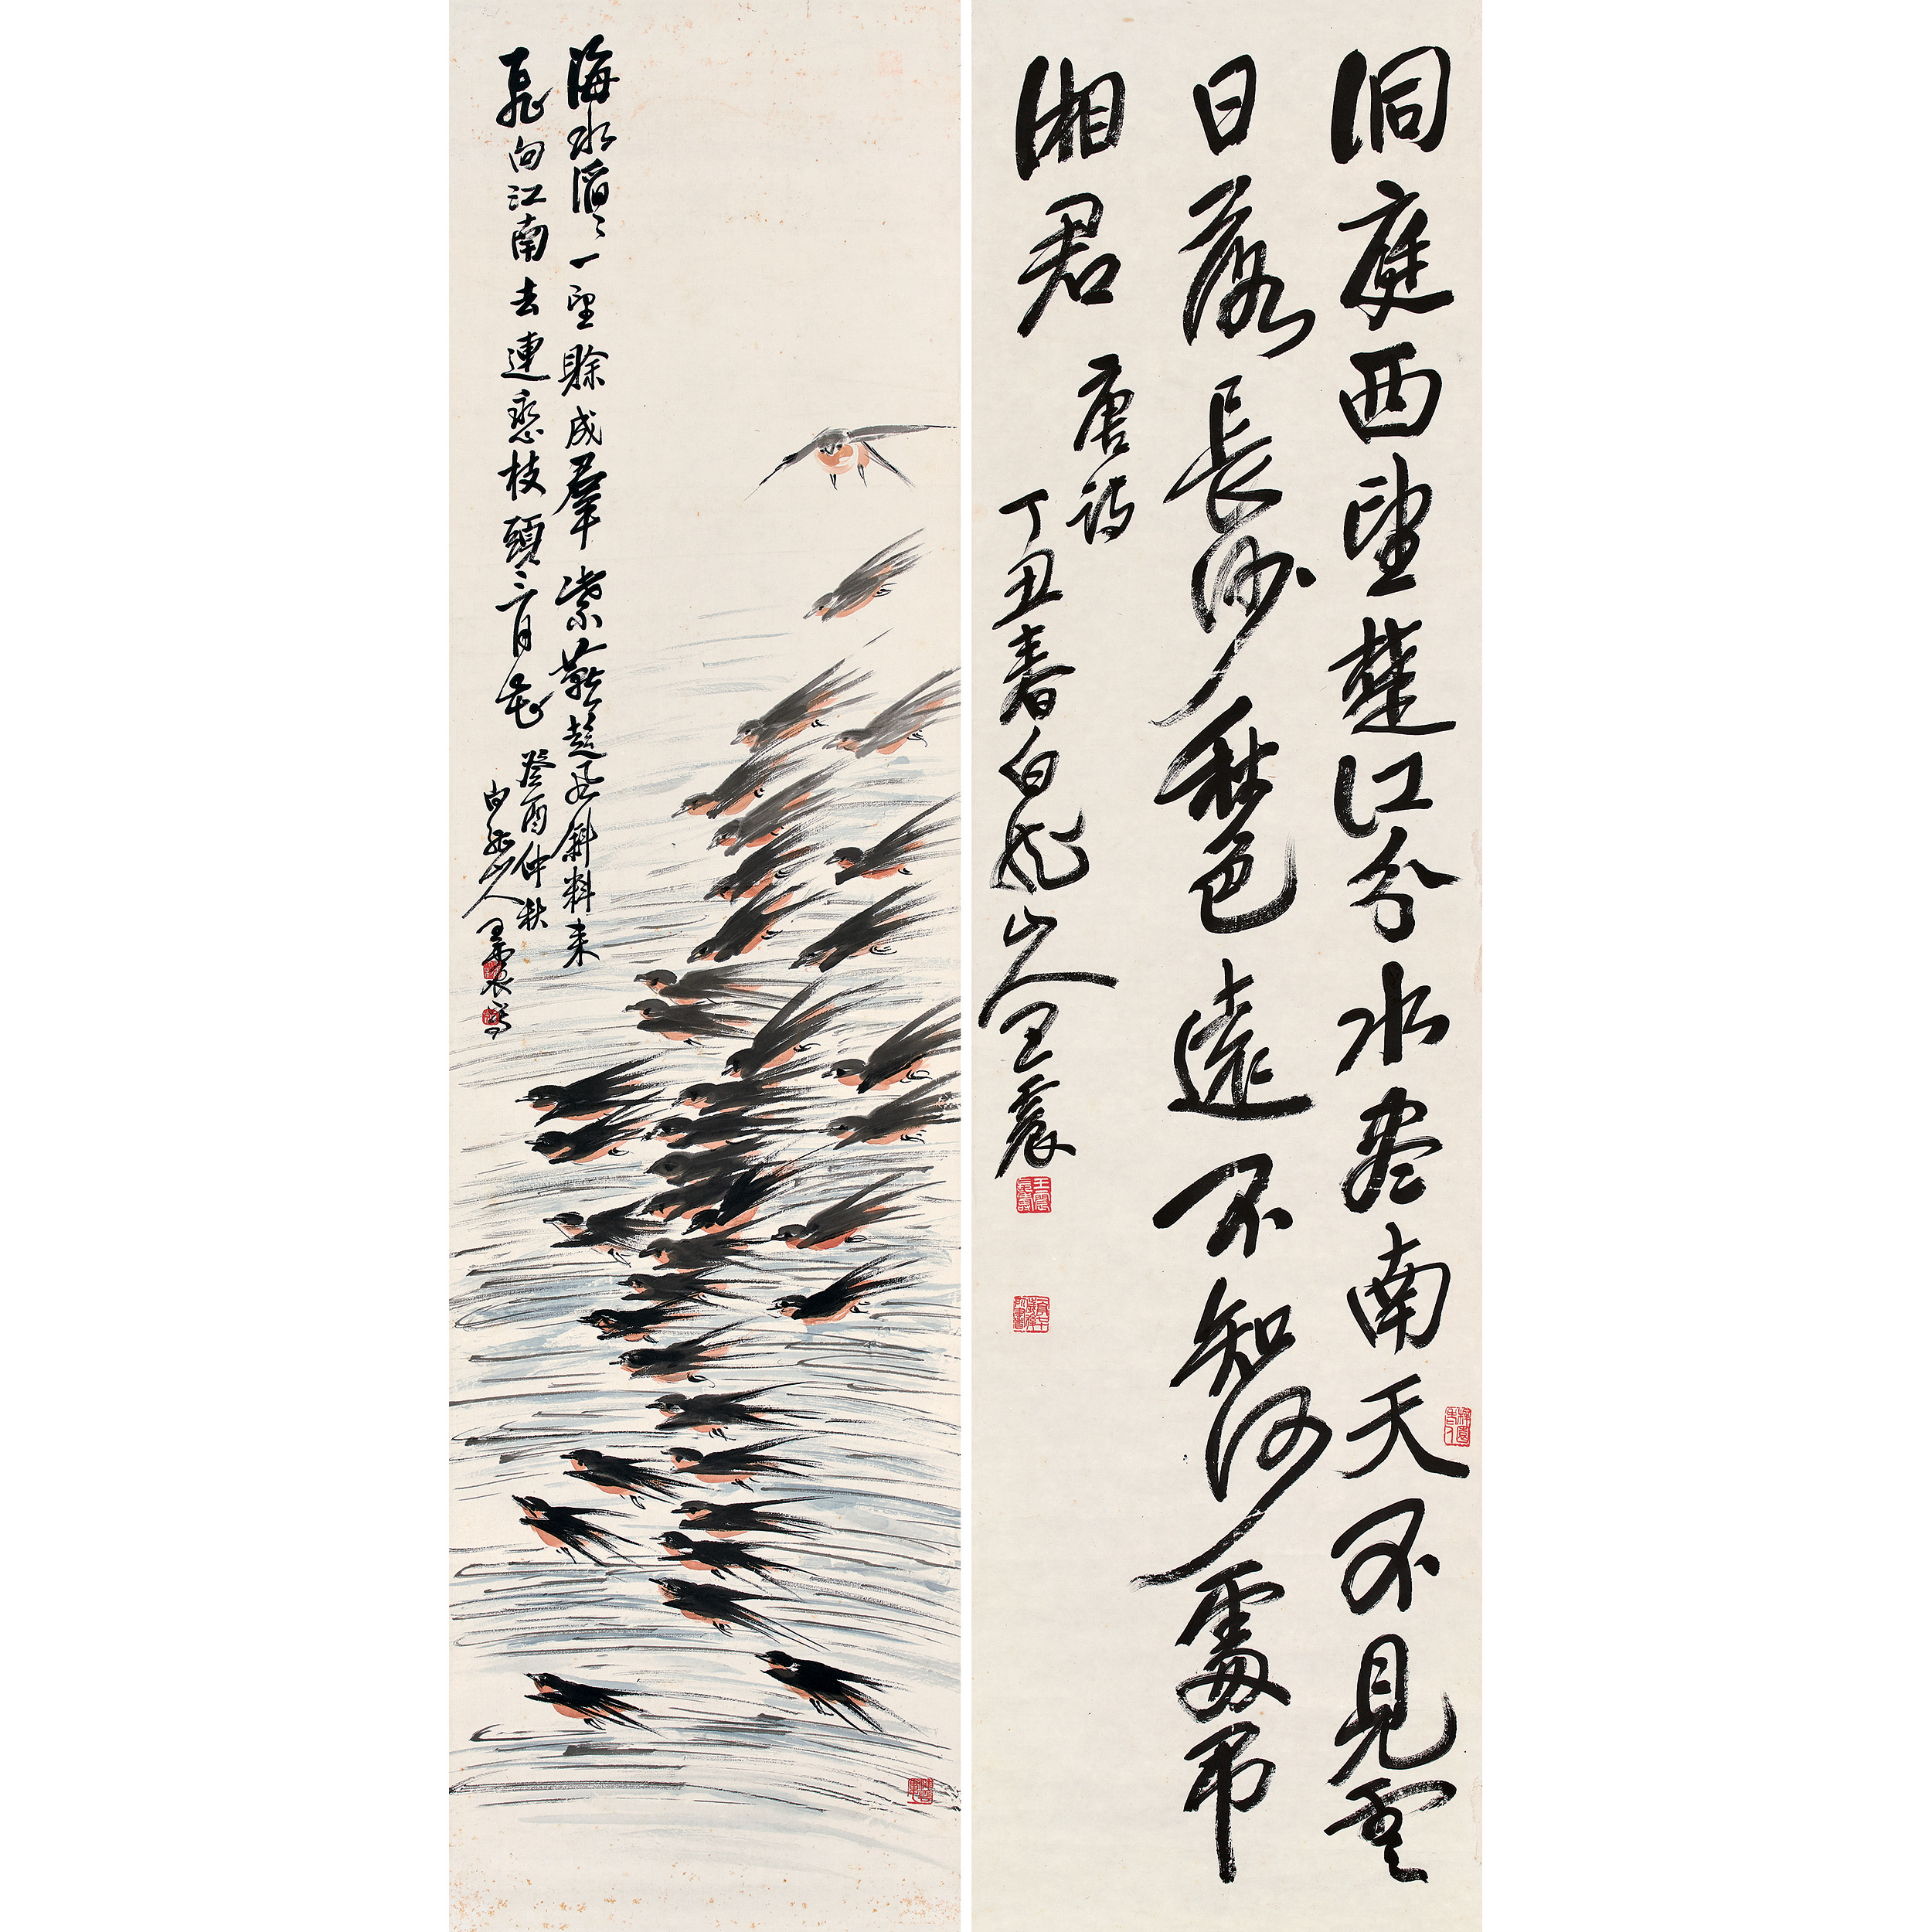 洞庭西望楚江分水尽南天不見雲
日落長沙秋色遠不知何處弔
湘君
唐詩
丁丑春白龍山人王震
海水滔滔一望賒成羣紫燕趁風斜料來
飛向江南去連戀枝頭二月花
癸酉仲秋
白龍山人王震寫